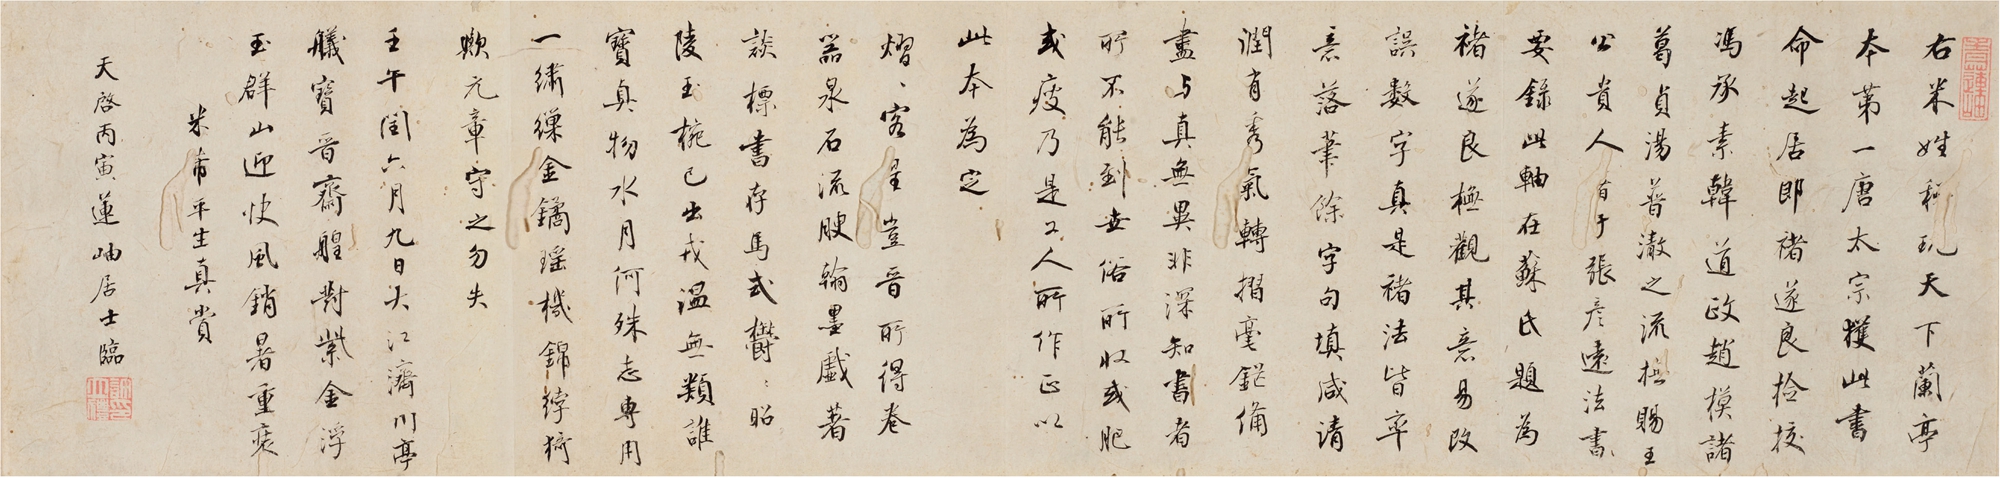 右米姓秘玩天下蘭亭
本第一唐太宗獲此書
命起居郎褚遂良撿校
馮承素韓道政趙模諸
葛貞湯普澈之流摸賜王
公貴人有于張彦遠法書
要録此軸在蘇氏題為
褚遂良摸觀其意易改
誤数字真是褚法皆率
意落筆餘字句填咸清
潤有秀氣轉摺毫鋩備
盡与真無異非深知書者
所不能到世俗所收或肥
或瘦乃是工人所作正以
此本為定
熠、客星豈晉所得卷
器泉石流腴翰墨戲著
談標書存馬式欝、昭
陵玉椀已出戎温無類誰
寶真物水月何殊志専用
一繡繅金鐍瑶機錦綍猗
歟元章守之勿失
壬午閏六月九日大江濟川亭
艤寶晉齋艎對紫金浮
玉群山迎快風銷暑重裝
米芾平生真賞
天啓丙寅蓮岫居士臨